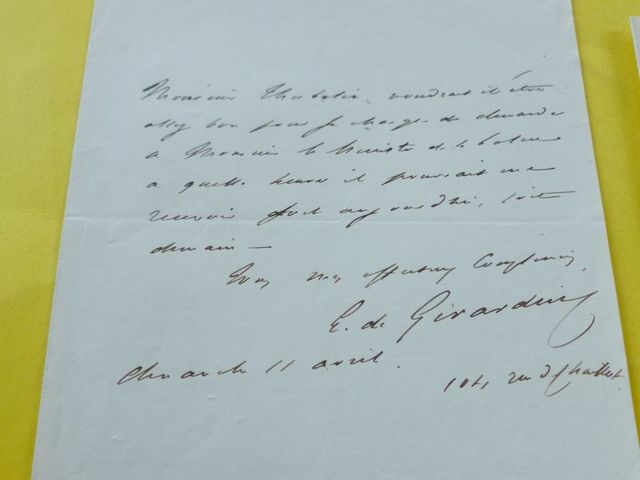 Monsieur voudrait il être
assez bon pour se charger de demander
à Monsieur le Ministre de la
à quelle heure il pourrait me
recevoir soit aujourd'hui, soit
demain —
Tous mes affectueux Compliments,
E. de Girardin
dimanche 11 avril.
rue de Chaillot.